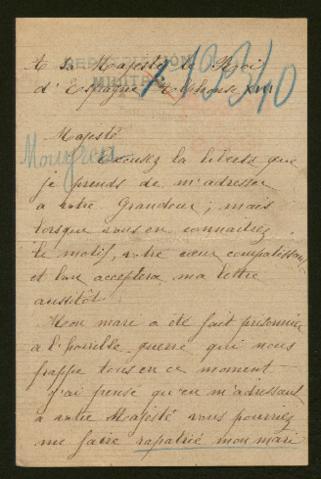 A sa Majesté le Roi
d'Espagne Alphonse XIII
Majesté
Excusez la liberté que
je prends de m'adresser
à votre Grandeur; mais
lorsque vous en connaitrez
le motif, votre cœur compatissant
et bon acceptera ma lettre
aussitôt.
Mon mari a été fait prisonnier
à l'horrible guerre qui nous
frappe tous en ce moment
j'ai pensé qu'en m'adressant
à votre Majesté vous pourriez
me faire rapatrié mon mari